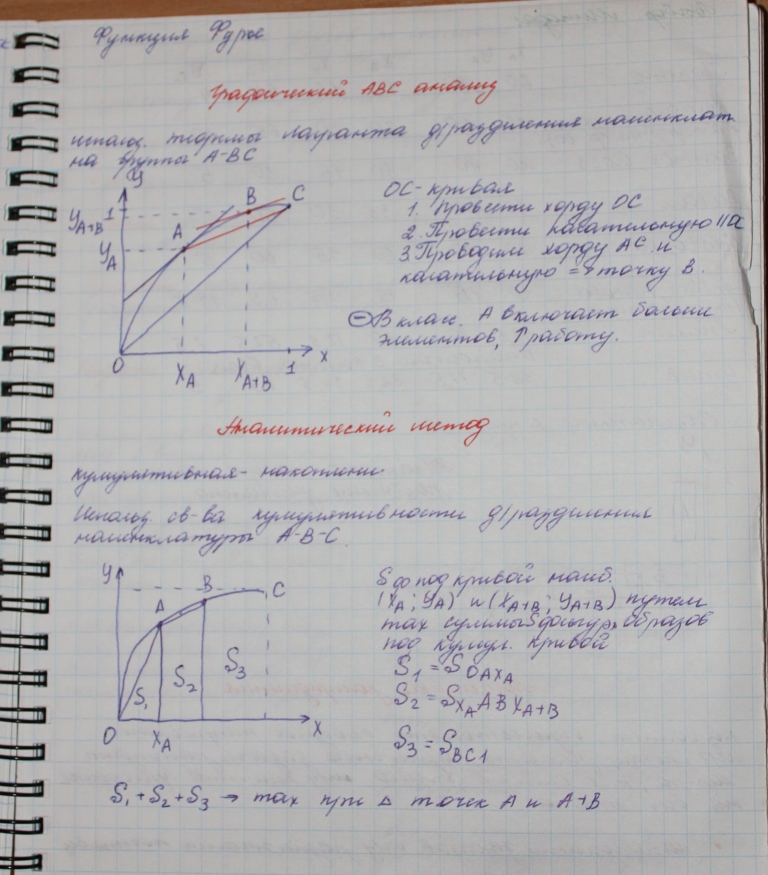 Функция Фурье
Графический ABC анализ
использ. теоремы Лагранжа д/разделения номенклат.
на группы A-BC
y
1
B
C
yA+B
A
yA
O
XA
XA+B
1
x
OC - кривая
1. Провести хорду OC
2. Провести касательную || OC
3 Проводим хорду AC и
касательную => точку B.
⊖ В класс. A включает больше
элементов, ↑ работу.
Аналитический метод
кумулятивная - накоплени
Использ. св-ва кумулятивности д/разделения
номенклатуры A-B-C
y
A
B
C
S1
S2
S3
O
XA
x
S ф под кривой наиб.
(XA; yA) и (XA+B; yA+B) путем
max суммы S фигур, образов
под кумул. кривой
S1 = SOAXA
S2 = SXAABXA+B
S3 = SBC1
S1 + S2 + S3 → max при Δ точек A и A+B